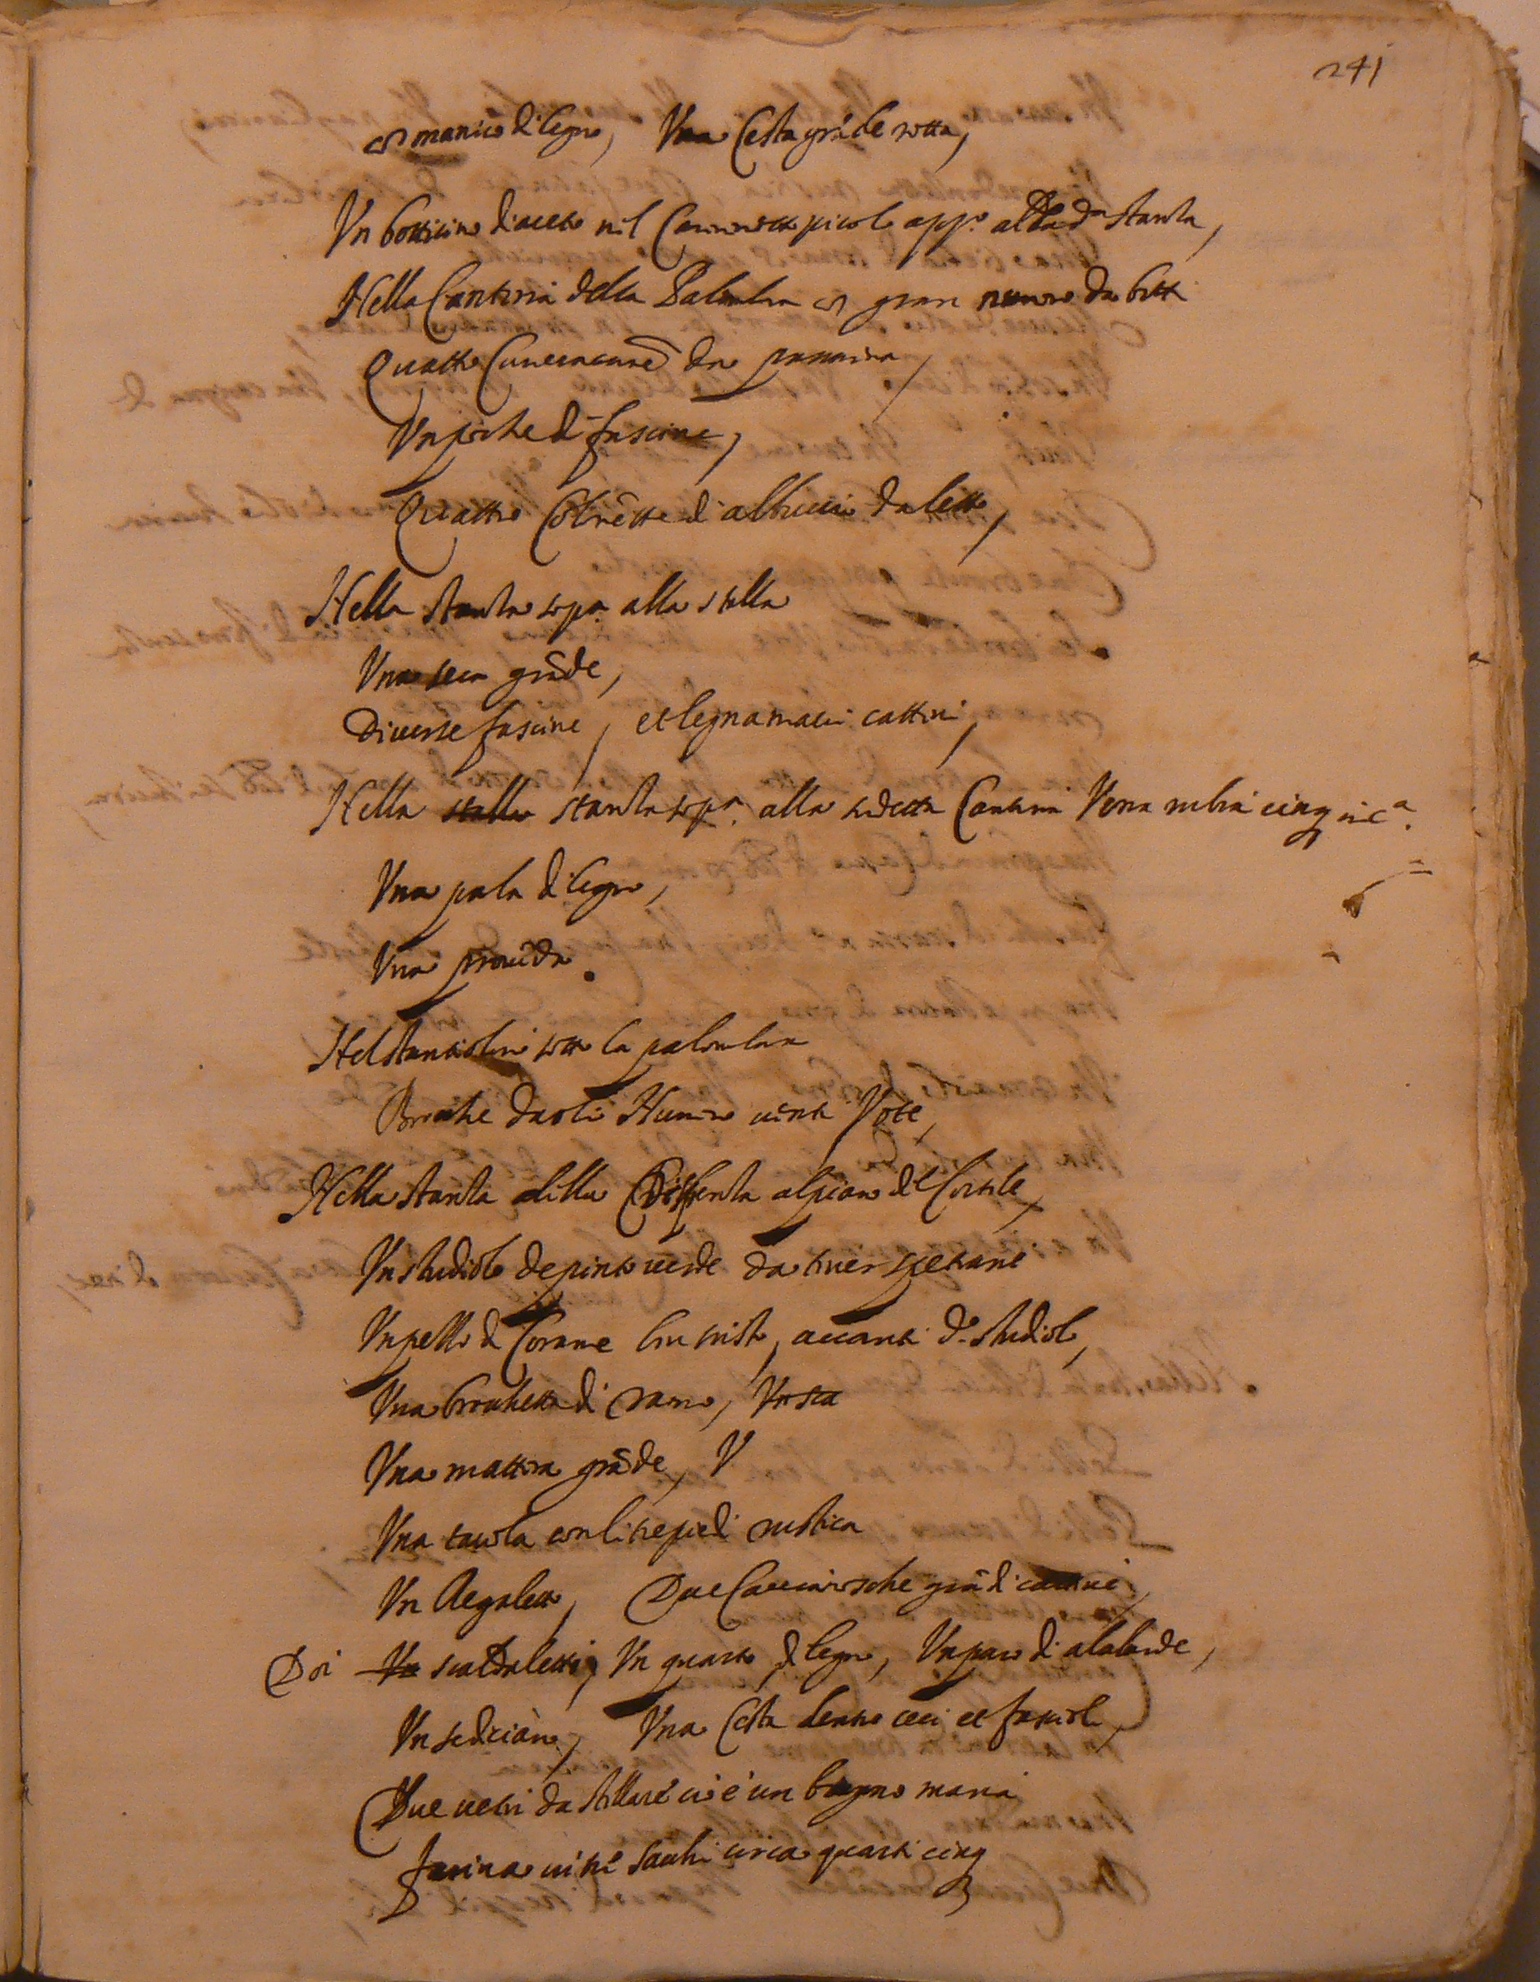 241
con manico di legno, Una Cesta grāde rotta,
Un botticino d'aceto nel Camerotto picolo app.o alla d.a stantia,
Nella Cantina della Palombara con gran numero da botti
Quattro da
Un poche di fascine,
Quattro Coltrette d'albuccio da letto,
Nella stantia sop.a alla stalla
Una sega grāde,
Diverse fascine, et legnamacci cattivi,
Nella stalla stantia sop.a alla sudetta Cantina Vena rubia cinq in c.a
Una pala di legno,
Una
Nel stantiolino sotto la palombara
Brocche da oli Numero venti Vote,
Nella stantia della Dispensa al piano del Cortile,
Un studiolo depinto verde da tener
Un pello di Corame avanti d.o studiolo,
Una brochetta di rame, Vista
Una mattra grāde, V
Una tavola con li trepiedi rustica
Un Regaletto, Due grādi cattive,
Doi Un scaldaletti, Un quarto di legno, Un paro di alabarde,
Un sediciano, Una Cesta dentro ceci et fascioli,
Due vetri da stillare cioè un bagno maria
farina in tre sacchi circa quarti cinq